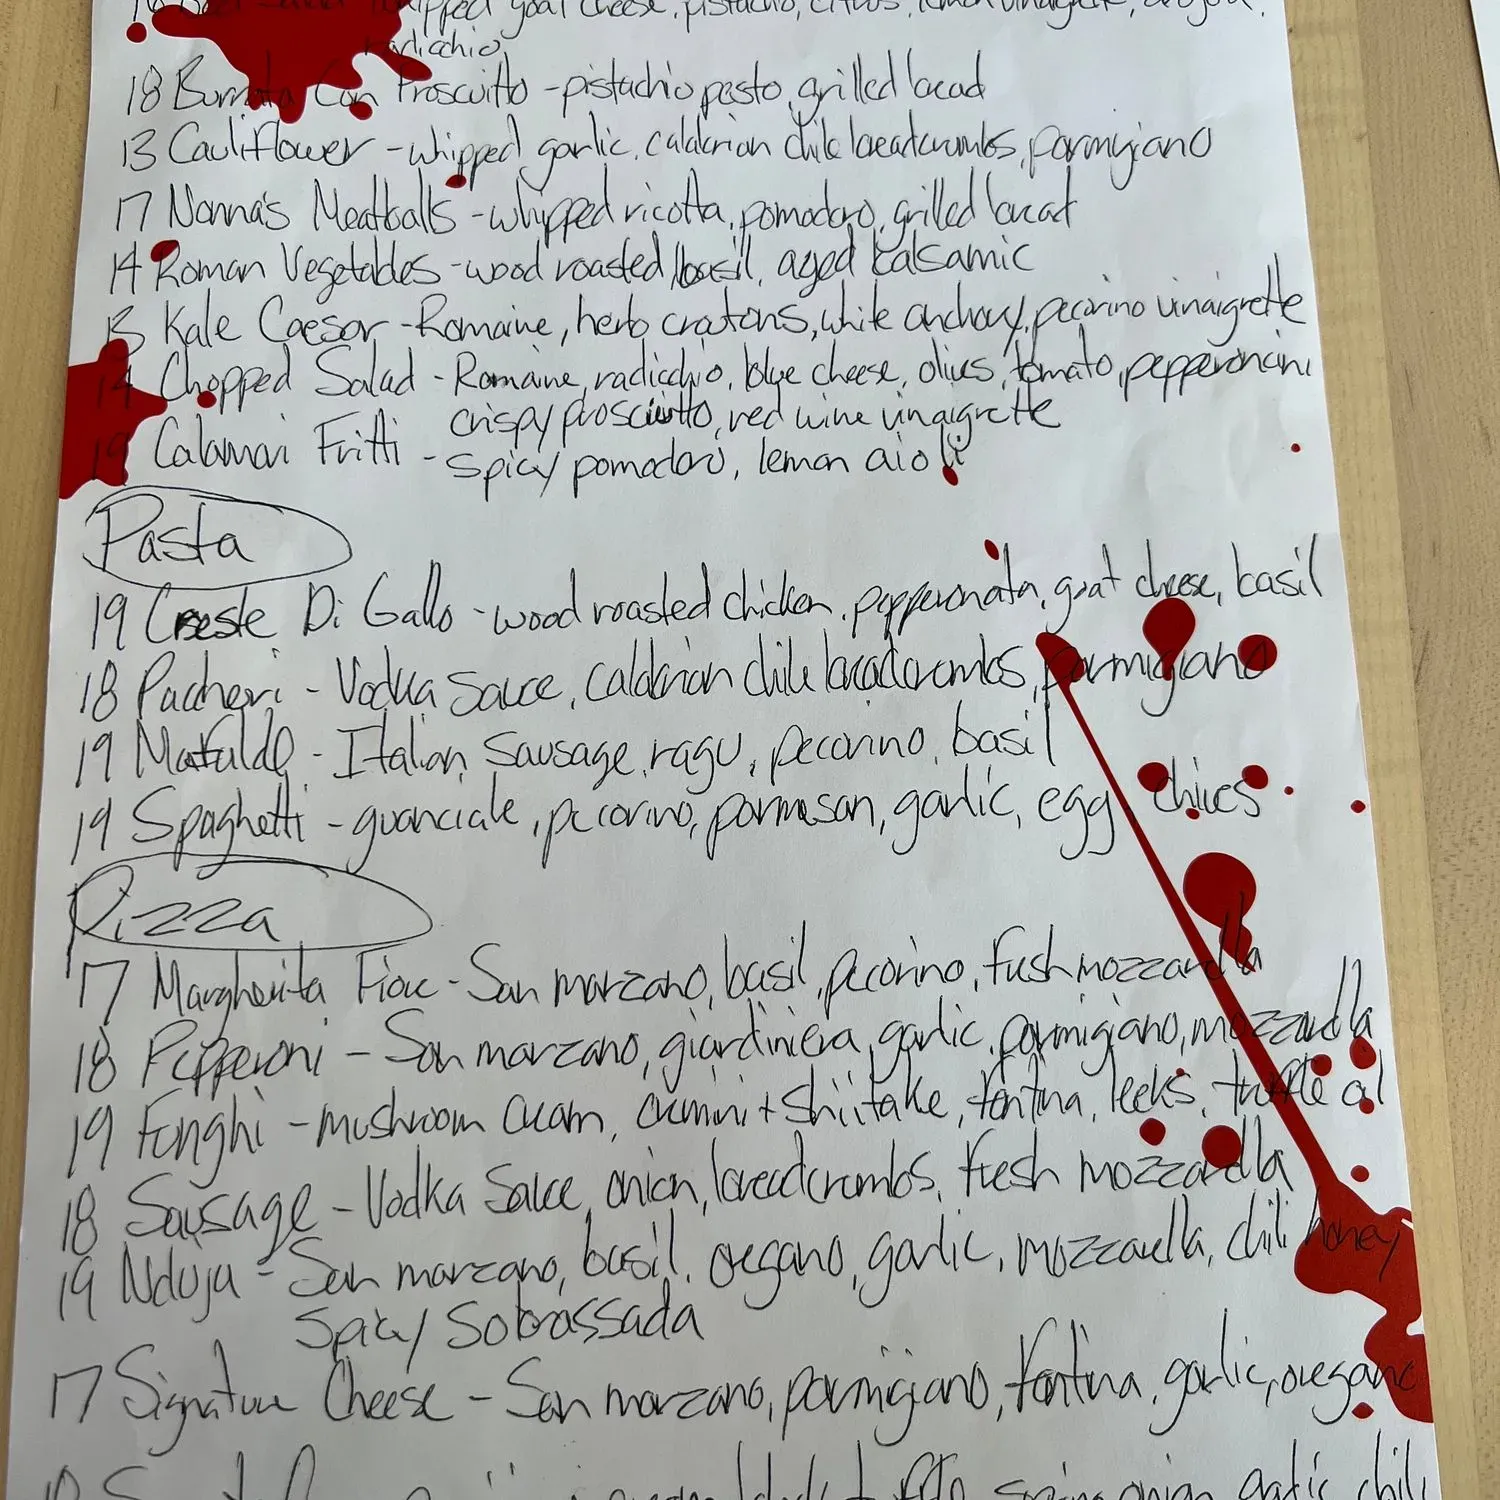 16 Beet Salad whipped goat cheese, pistachio, citrus, lemon vinaigrette, arugula,
radicchio
18 Burrata Con Proscuitto - pistachio pesto, grilled bread
13 Cauliflower - whipped garlic, calabrian chile breadcrumbs, parmigiano
17 Nonna's Meatballs - whipped ricotta, pomodoro, grilled bread
14 Roman Vegetables - wood roasted, basil, aged balsamic
13 Kale Caesar - Romaine, herb croutons, white anchovy, pecorino vinaigrette
14 Chopped Salad - Romaine, radicchio, blue cheese, olives, tomato, pepperoncini
crispy prosciutto, red wine vinaigrette
19 Calamari Fritti - spicy pomodoro, lemon aioli
Pasta
19 Creste Di Gallo - wood roasted chicken, pepperonata, goat cheese, basil
18 Paccheri - Vodka Sauce, calabrian chile breadcrumbs, parmigiano
19 Mafalde - Italian Sausage ragu, pecorino, basil
19 Spaghetti - guanciale, pecorino, parmesan, garlic, egg, chives
Pizza
17 Margherita Fiore - San marzano, basil, pecorino, fresh mozzarella
18 Pepperoni - San marzano, giardiniera, garlic, parmigiano, mozzarella
19 Funghi - mushroom cream, crimini + shiitake, fontina, leeks, truffle oil
18 Sausage - Vodka Sauce, onion, breadcrumbs, fresh mozzarella
19 Nduja - San marzano, basil, oregano, garlic, mozzarella, chili honey
Spicy Sobrassada
17 Signature Cheese - San marzano, parmigiano, fontina, garlic, oregano
garlic, chili